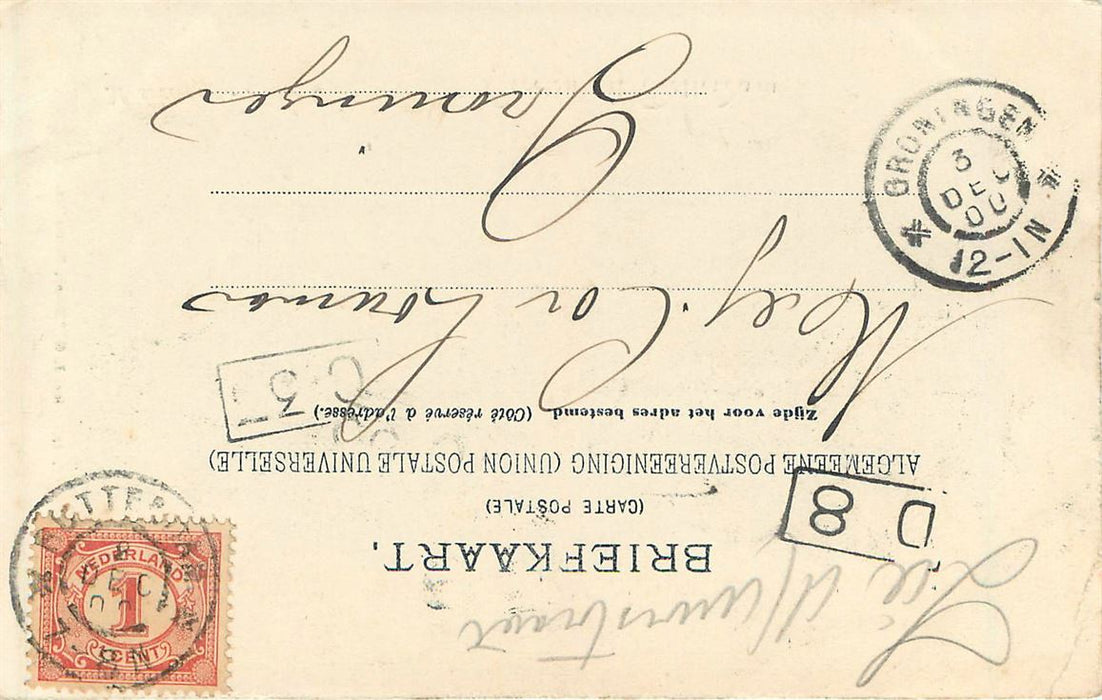 BRIEFKAART.
(CARTE POSTALE)
ALGEMEENE POSTVEREENIGING (UNION POSTALE UNIVERSELLE)
Zijde voor het adres bestemd. (Côté réservé à l'adresse.)
Mej. Cor
Groningen
D 8
C 3
GRONINGEN
3
DEC
00
12-1N
NEDERLAND
1
CENT
DEC